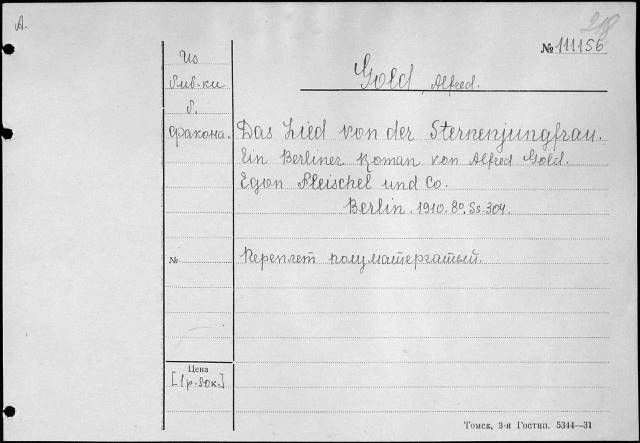 A.
218
№ 111156
Из
библ-ки
б.
фракона.
Gold, Alfred.
Das Lied von der Sternenjungfrau.
Ein Berliner Roman von Alfred Gold.
Egon Fleischel und Co.
Berlin. 1910. 8º. Ss. 304.
№
Переплет полуматерчатый.
Цена
[1 р. 80к.]
Томск, 3-я Гостип. 5344—31